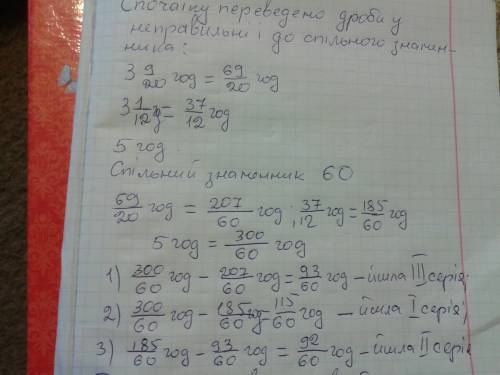 Спочатку переведено дроби у
неправильні і до спільного знамен-
ника:
3 9/20 год = 69/20 год
3 1/12 = 37/12 год
5 год.
Спільний знаменник 60
69/20 год = 207/60 год; 37/12 год = 185/60 год
5 год = 300/60 год
1) 300/60 год - 207/60 год = 93/60 год - йшла III серія;
2) 300/60 год - 185/60 год = 115/60 год - йшла I серія;
3) 185/60 год - 93/60 год = 92/60 год - йшла II серія